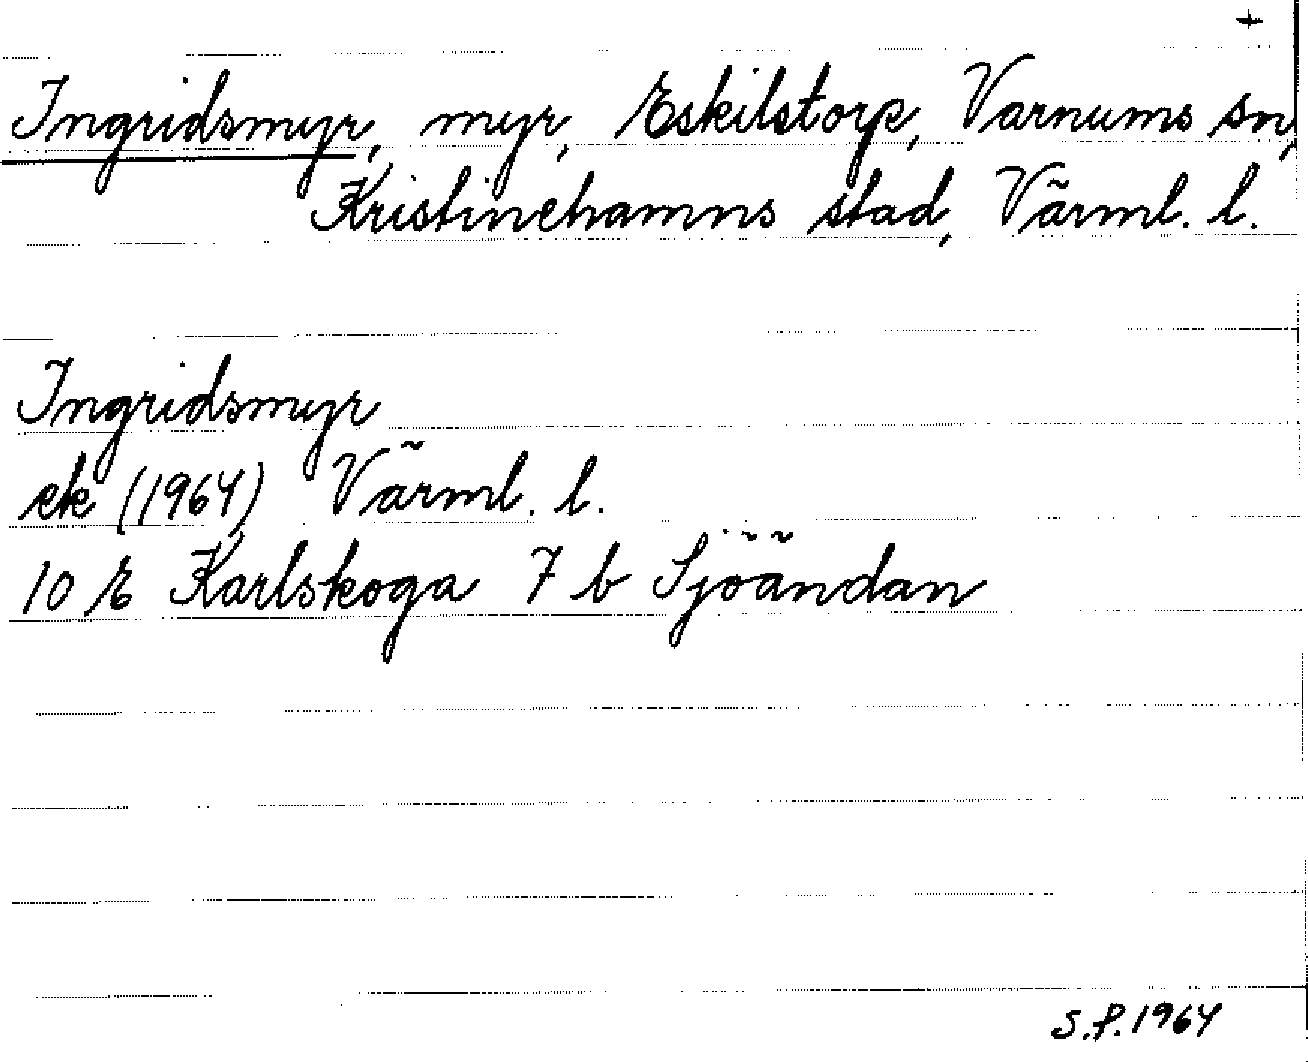 +
Ingridsmyr, myr, Eskilstorp, Varnums sn,
Kristinehamns stad, Värml. l.
Ingridsmyr
ek (1964) Värml. l.
10 E Karlskoga 7 b Sjöändan
S.P. 1964